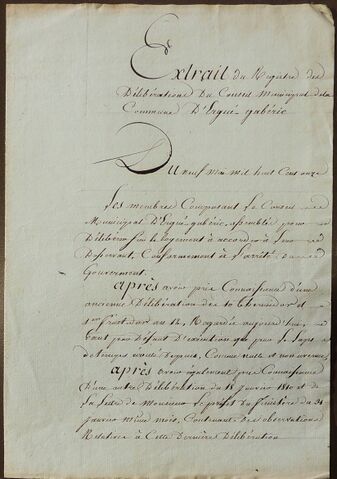 Extrait du Registre des
Délibérations Du Conseil Municipal de la
Commune D'Ergué-gabéric
Du neuf Mai mil huit Cent onze
Les membres Composant Le Conseil
Municipal D'Ergué-gabéric, assemblés pour
Délibérer sur le logement à accorder à Leur
Desservant, Conformément à l'arrêté du
Gouvernement.
après avoir pris Connaissance d'une
ancienne Délibération des 10 thermidor et
1er fructidor an 12, Regardée aujourd'hui,
tant pour Défaut D'exécution que pour le Laps
de temps écoulé Depuis, Comme nulle et non avenue,
après avoir également pris Connaissance
D'une autre Délibération du 15 janvier 1810 et de
la Lettre de Monsieur Le préfet du finistère du 31
janvier même mois, Contenant des observations
Relatives à Cette Dernière Délibération